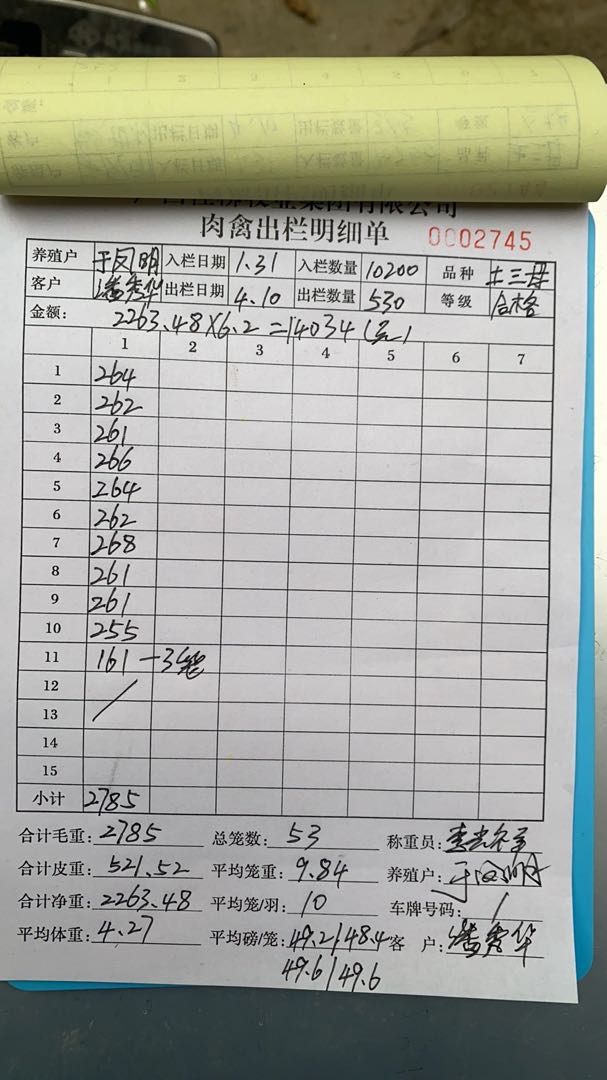 集团有限公司
肉禽出栏明细单 0002745
养殖户 于凤明 入栏日期 1.31 入栏数量 10200 品种 土三母
客户 潘秀华 出栏日期 4.10 出栏数量 530 等级 合格
金额: 2263.48×6.2=14034(元)
1 2 3 4 5 6 7
1 264
2 262
3 261
4 266
5 264
6 262
7 268
8 261
9 261
10 255
11 161 一3笼
12
13
14
15
小计 2785
合计毛重: 2785 总笼数: 53 称重员:
合计皮重: 521.52 平均笼重: 9.84 养殖户: 于凤明
合计净重: 2263.48 平均笼/羽: 10 车牌号码: /
平均体重: 4.27 平均磅/笼: 49.2/48.4 客 户: 潘秀华
49.6/49.6